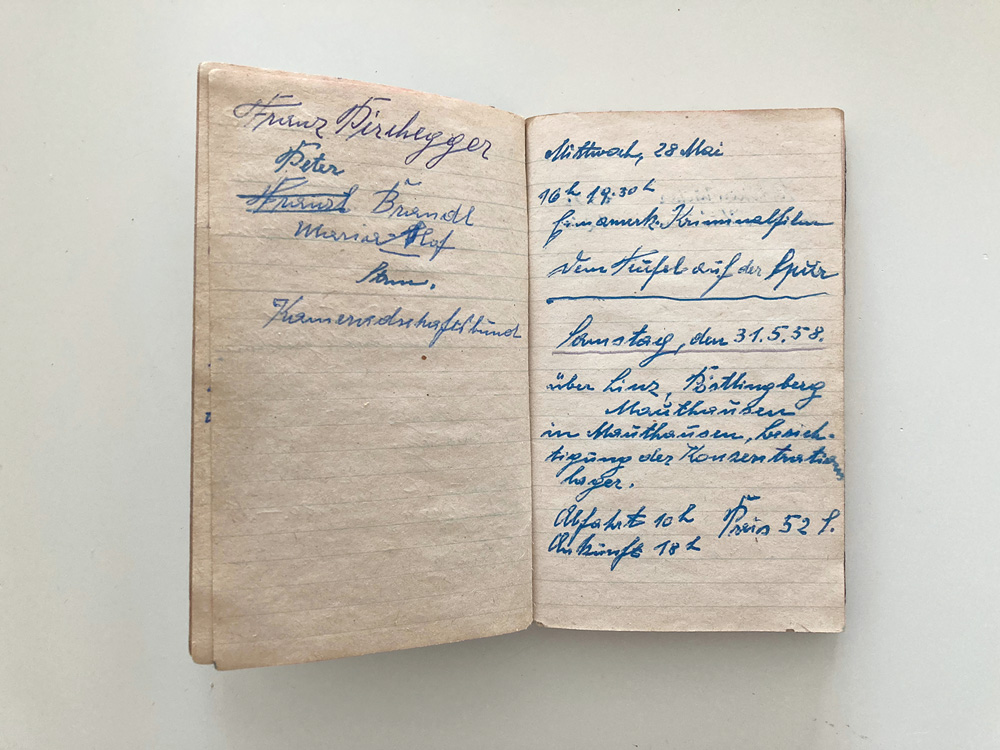 Franz Pirchegger
Peter
Franzl Brandl
Maria-Hof
Stm.
Kameradschaftsbund
Mittwoch, 28 Mai
16h 19.30h
Ein amerk. Kriminalfilm
Dem Teufel auf der Spur
Samstag, den 31.5.58.
über Linz, Pöstlingberg
Mauthausen
in Mauthausen, besich-
tigung der Konzentrations
lager.
Abfahrt 10h Preis 52 S.
Ankunft 18h